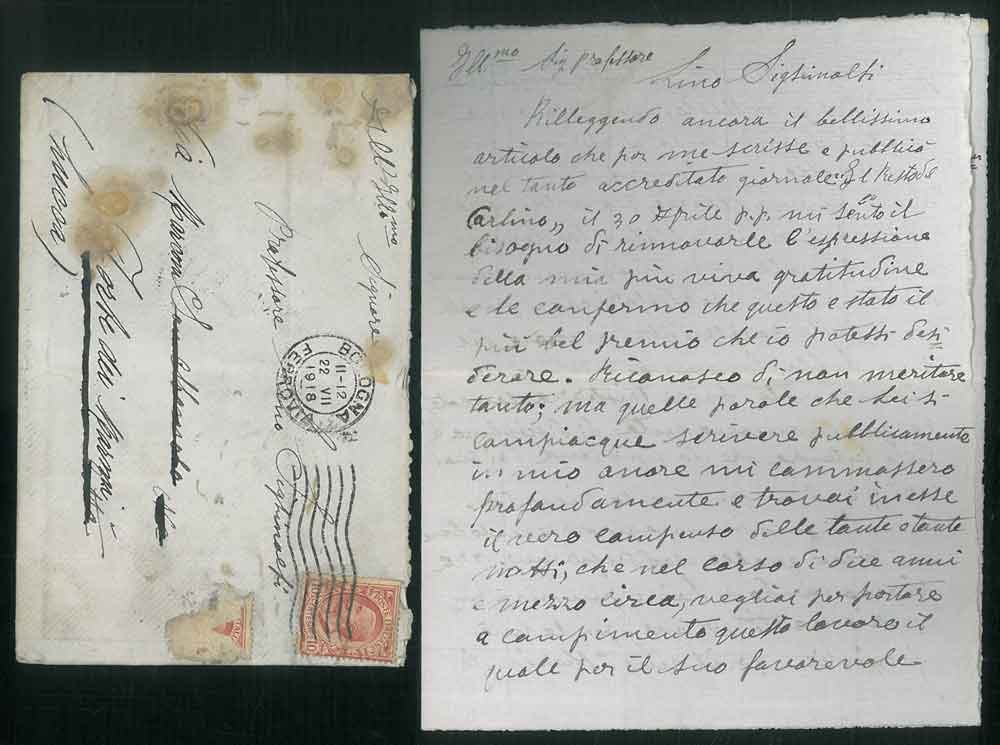 All'Ill.mo Signore
Professore Lino Sighinolfi
Via
Forte dei Marmi
(Lucca)
BOLOGNA
11-12
22 VII
1918
FERROVIA
10
Ill.mo Sig. Professore
Lino Sighinolfi
Rilleggendo ancora il bellissimo
articolo che per me scrisse e pubblicò
nel tanto accreditato giornale "Il Resto del
Carlino„ il 30 Aprile p.p. mi sento il
bisogno di rinnovarle l'espressione
della mia più viva gratitudine
e le confermo che questo è stato il
più bel premio che io potessi desi
derare. Riconosco di non meritare
tanto; ma quelle parole che Lei si
compiacque scrivere pubblicamente
in mio onore mi commossero
profondamente e trovai in esse
il vero compenso delle tante e tante
notti, che nel corso di due anni
e mezzo circa, vegliai per portare
a compimento questo lavoro il
quale per il suo favorevole